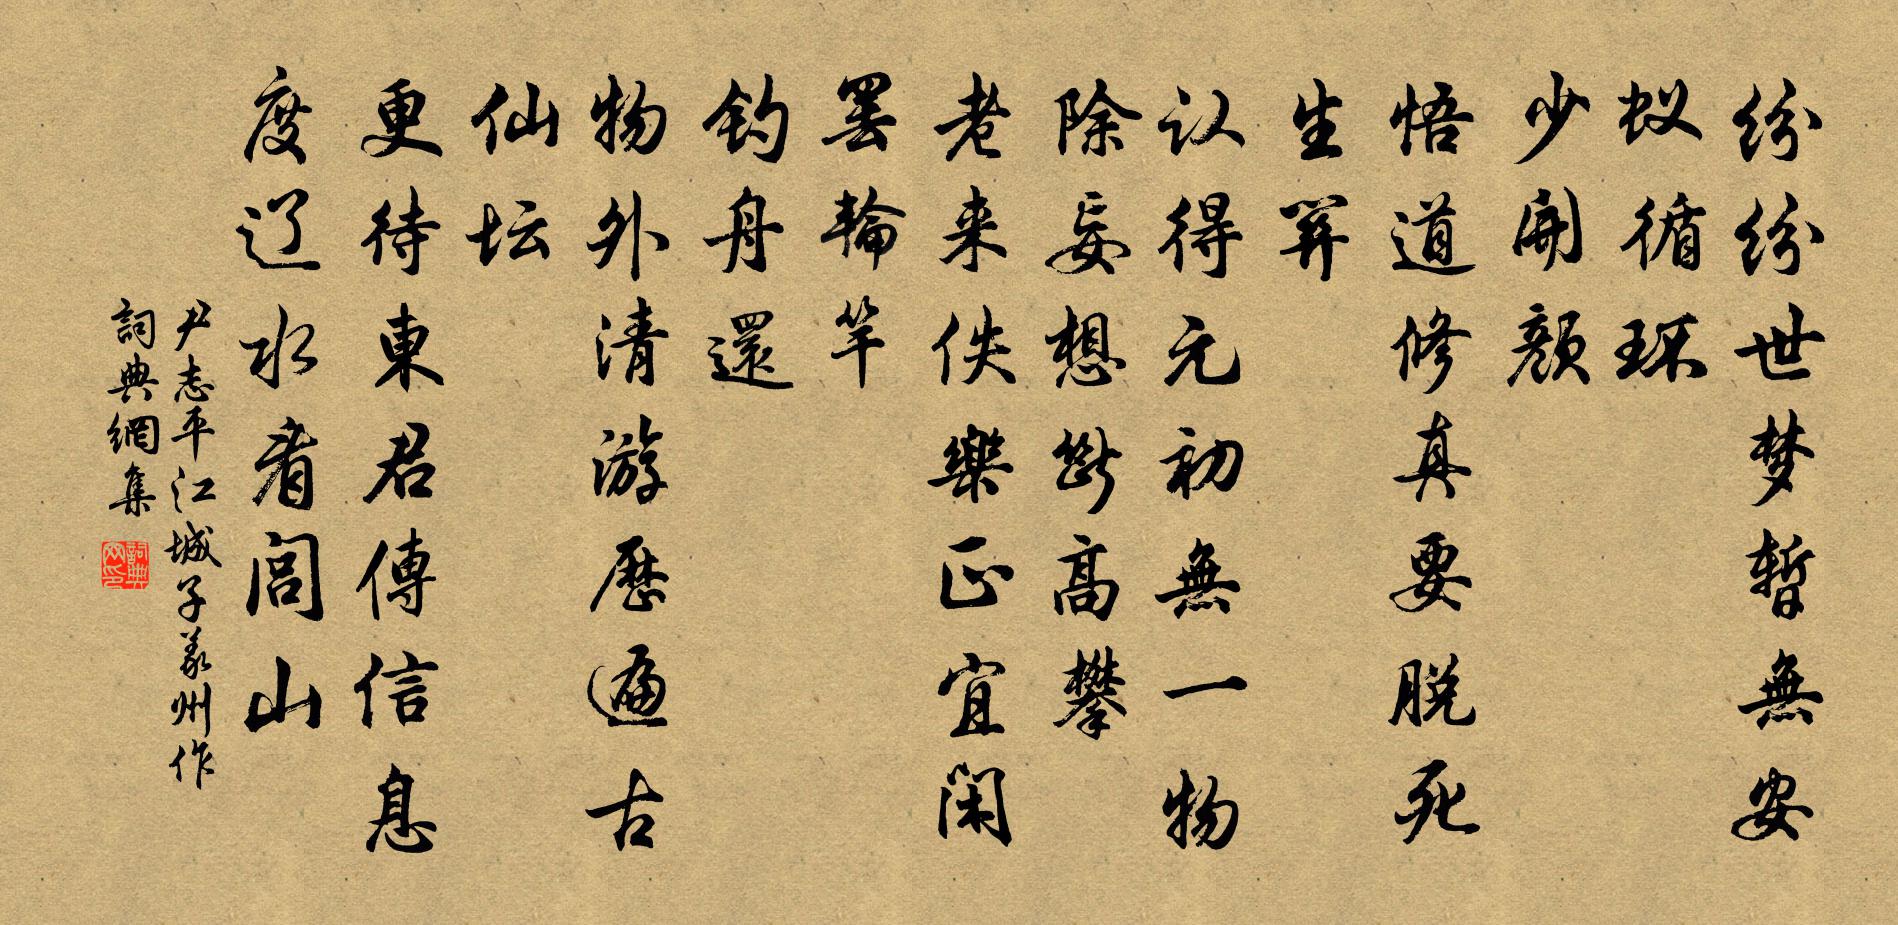 纷纷世梦暂無安
蚁循环
少開颜
悟道修真要脱死
生関
认得元初無一物
除妄想断高攀
老来佚樂正宜闲
罢輪竿
钓舟還
物外清游歷遍古
仙坛
更待東君傳信息
度辽水看闾山
尹志平江城子義州作
詞典網集
詞典
网印